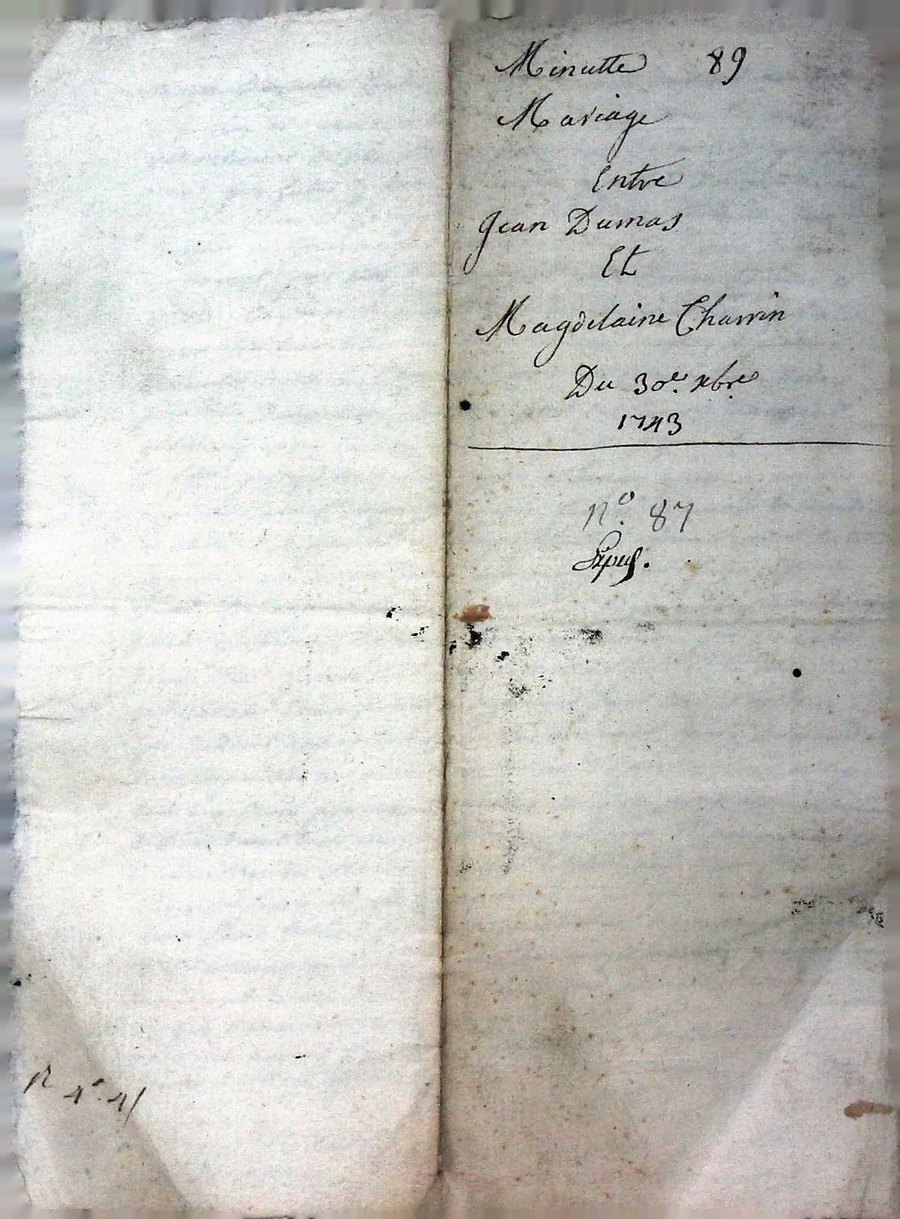 Minutte 89
Mariage
Entre
Jean Dumas
Et
Magdelaine Charrin
Du 30e. xbre
1743
No. 87